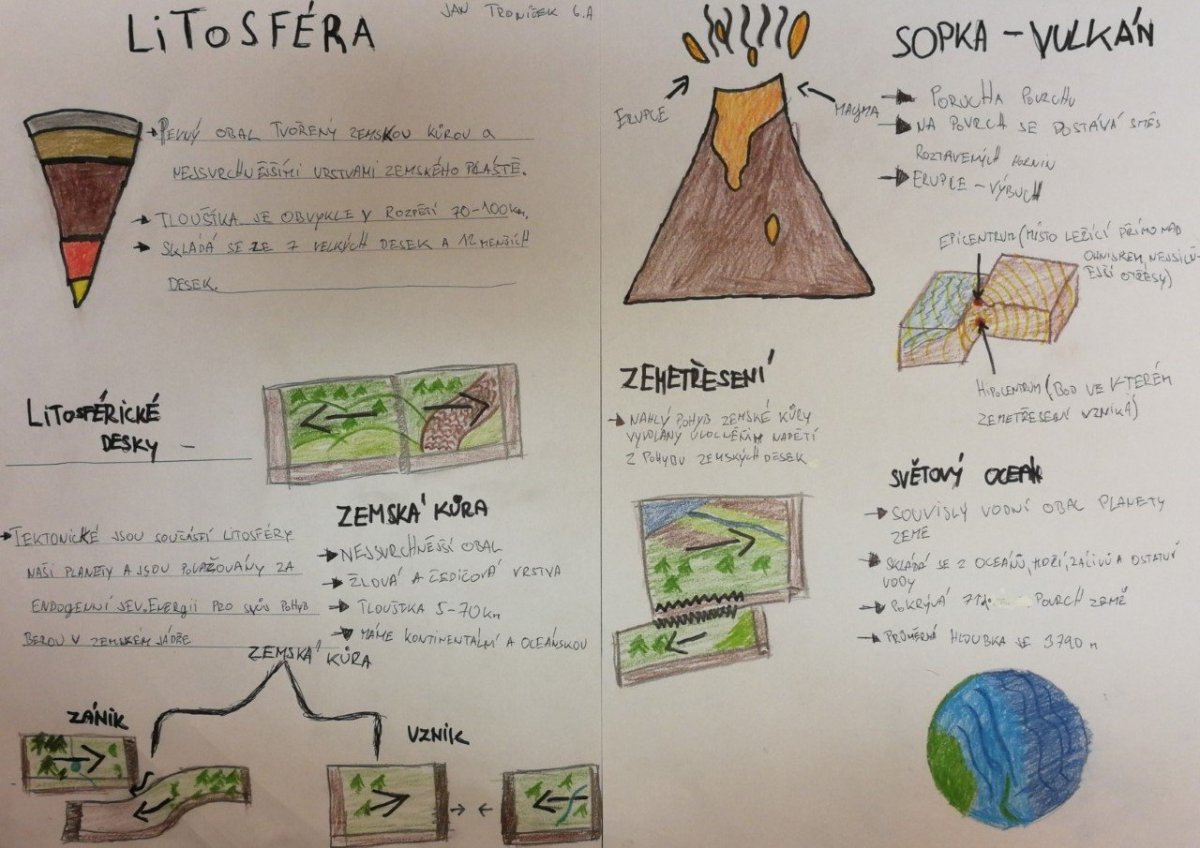 LITOSFÉRA
JAN TRONÍČEK 6.A
PEVNÝ OBAL TVOŘENÝ ZEMSKOU KŮROU A
NEJSVRCHNĚJŠÍMI VRSTVAMI ZEMSKÉHO PLÁŠTĚ.
TLOUŠŤKA JE OBVYKLE V ROZPĚTÍ 70-100km.
SKLÁDÁ SE ZE 7 VELKÝCH DESEK A 12 MENŠÍCH
DESEK.
LITOSFÉRICKÉ
DESKY –
TEKTONICKÉ JSOU SOUČÁSTÍ LITOSFÉRY
NAŠÍ PLANETY A JSOU POVAŽOVÁNY ZA
ENDOGENNÍ JEV. ENERGII PRO SVŮJ POHYB
BEROU V ZEMSKÉM JÁDŘE
ZEMSKÁ KŮRA
NEJSVRCHNĚJŠÍ OBAL
ŽULOVÁ A ČEDIČOVÁ VRSTVA
TLOUŠTKA 5-70Km
MÁME KONTINENTÁLNÍ A OCEÁNSKOU
ZEMSKÁ KŮRA
ZÁNIK
VZNIK
SOPKA – VULKÁN
ERUPCE
MAGMA
PORUCHA POVRCHU
NA POVRCH SE DOSTÁVÁ SMĚS
ROZTAVENÝCH HORNIN
ERUPCE – VÝBUCH
EPICENTRUM (MÍSTO LEŽÍCÍ PŘÍMO NAD
OHNISKEM, NEJSILN-
ĚJŠÍ OTŘESY)
HIPOCENTRUM (BOD VE KTERÉM
ZEMETŘESENÍ VZNIKÁ)
ZEMETŘESENÍ
NÁHLÝ POHYB ZEMSKÉ KŮRY
VYVOLANÝ UVOLNĚNÍM NAPĚTÍ
Z POHYBU ZEMSKÝCH DESEK
SVĚTOVÝ OCEÁN
SOUVISLÝ VODNÍ OBAL PLANETY
ZEMĚ
SKLÁDÁ SE Z OCEÁNŮ, MOŘÍ, ZÁLIVŮ A OSTATNÍ
VODY
POKRÝVÁ 71% POVRCH ZEMĚ
PRŮMĚRNÁ HLOUBKA JE 3790 m